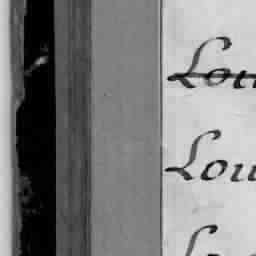 Lou
Lou